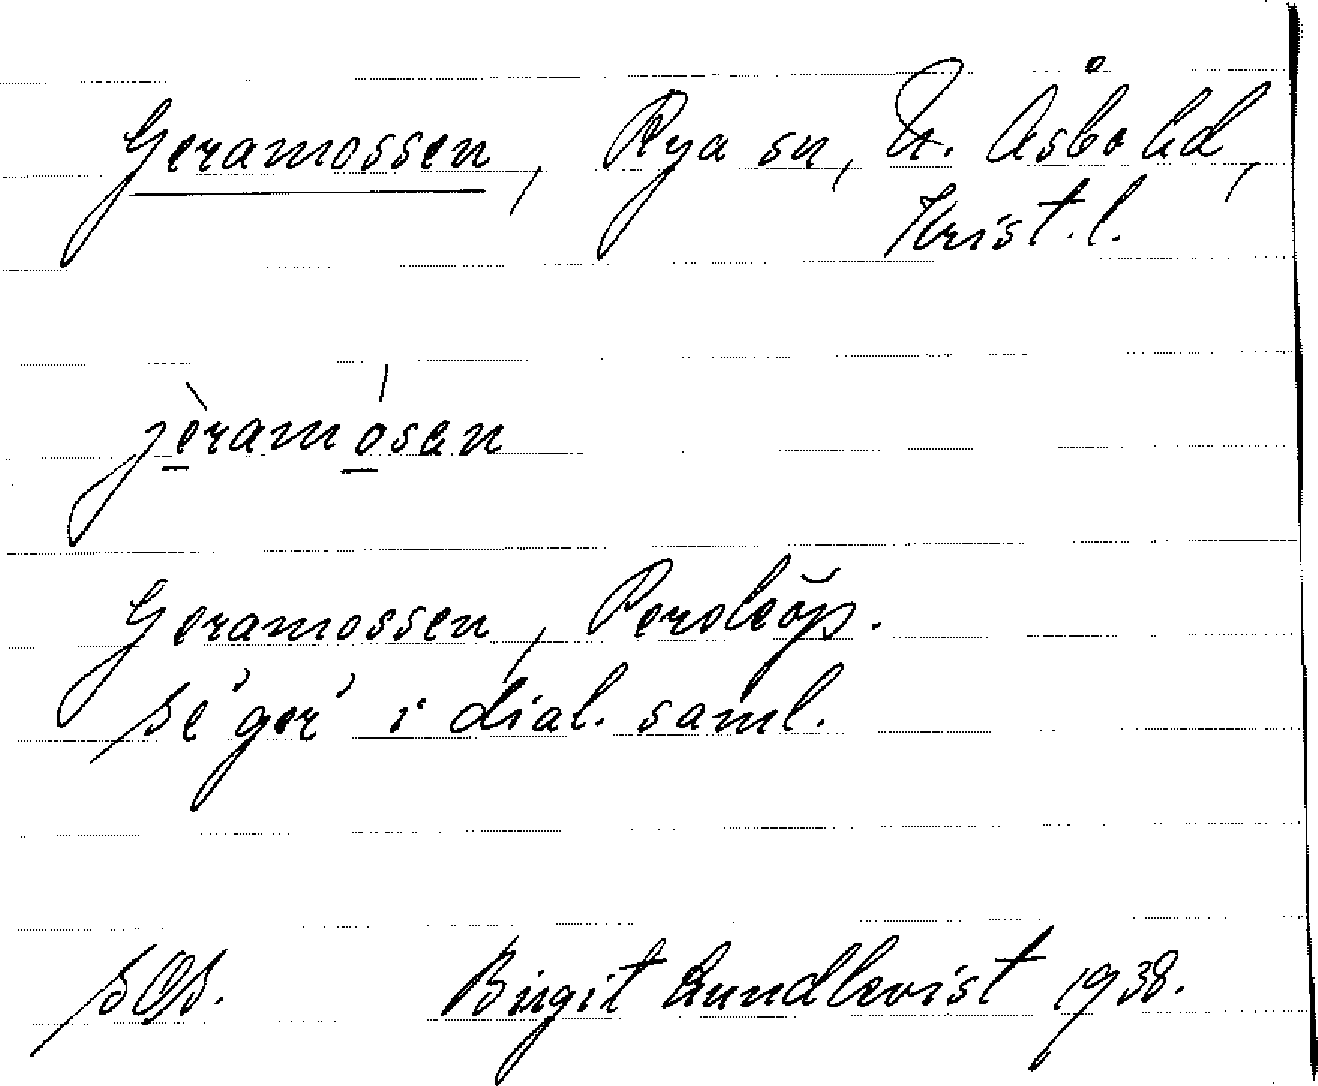 Geramossen, Rya sn, N. Åsbo hd,
Krist. l.
jèramósen
Geramossen,
se 'ger' i dial. saml.
SOS. Birgit Lundkvist 1938.